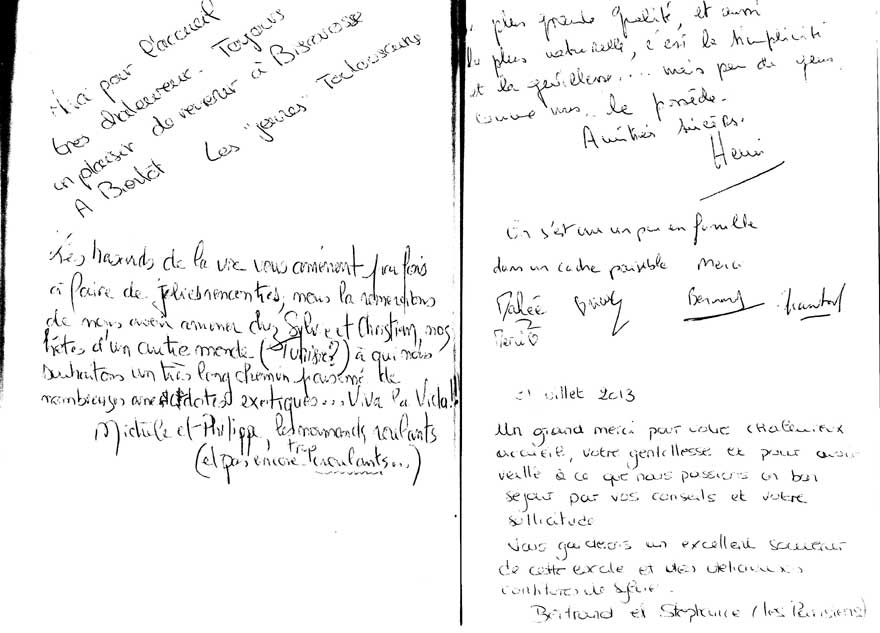 Merci pour l'accueil
très chaleureux. Toujours
un plaisir de revenir à Biscarosse
A Bientôt Les "jeunes" Toulousains
Les hasards de la vie vous amènent parfois
à faire de jolies rencontres, nous la remercions
de nous avoir amener chez Sylvie et Christian, nos
hôtes d'un autre monde (Tunisie?) à qui nous
souhaitons un très long chemin parsemé de
nombreuses anecdotes exotiques... Viva la Vida!!
Michèle et Philippe, les normands roulants
(et pas encore trop croulants...)
plus grande qualité, et aussi
la plus naturelle, c'est la simplicité
et la gentillesse.... mais peu de gens
comme vous le possède.
Amitiés sincères.
Henri
On s'est cru un peu en famille
dans un cadre paisible Merci
Bernard Chantal
juillet 2013
Un grand merci pour votre chaleureux
accueil, votre gentillesse et pour avoir
veillé à ce que nous passions un bon
séjour par vos conseils et votre
sollicitude
Nous garderons un excellent souvenir
de cette escale et des délicieuses
confitures de Sylvie.
Bertrand et Stéphanie (les Parisiens)